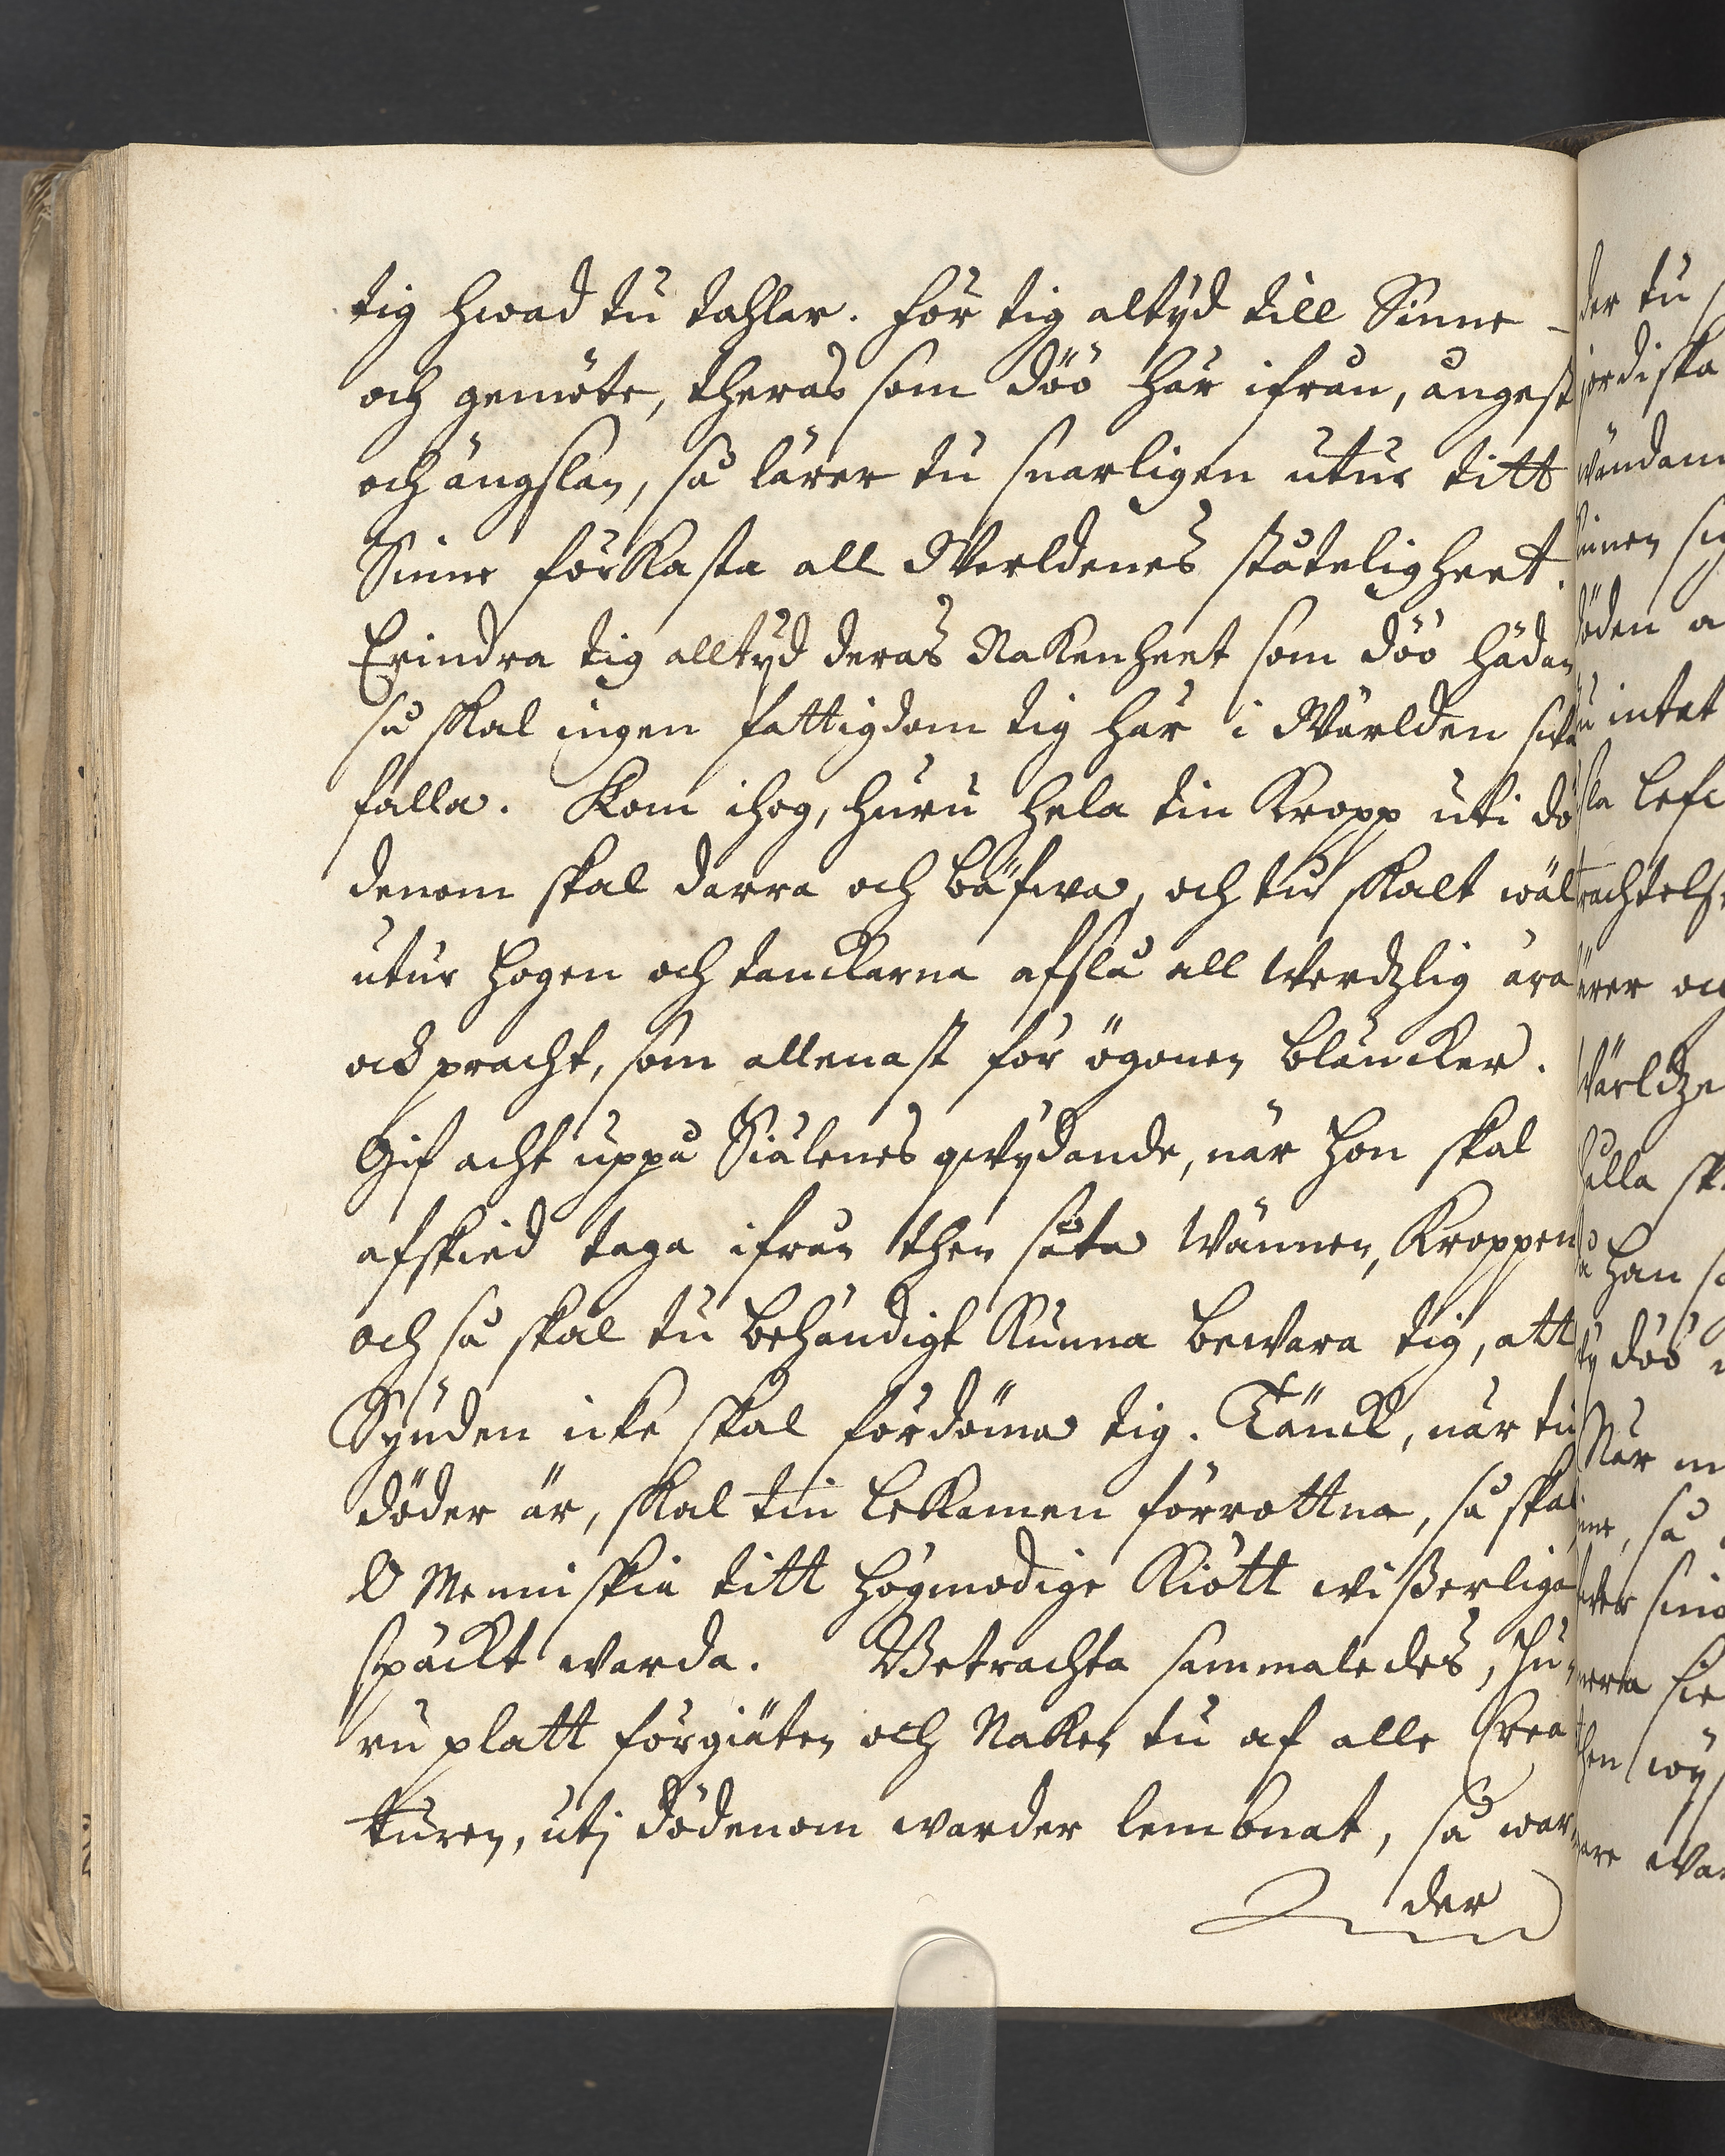 tig hwad tu tahlar. För tig altyd till Sinne -
och gemöte, theras som döö här ifrån, ångest
och ängslan, så lärer tu snarligen utur titt
Sinne förkasta all Werldenes ståteligheet.
Erindra tig alltyd deras Nakenheet som döö hädan
så skal ingen fattigdom tig här i Wärlden swår
falla. Kom ihog, huru hela tin Kropp uti dö
denom skal darra och bäfwa, och tu skalt wäl
utur hogen och tanckarna afslå all Werdzlig ära
och pracht, som allenast för ögonen bläncker.
Gif acht uppå Siälenes qwydande, när hon skal
afskied taga ifrån then söta Wännen, Kroppen
och så skal tu behändigt Kunna bewara tig, att
Synden icke skal fördöma tig. Tänck, när tu
döder är, skal tin lekamen förrottna, så skal
O Menniskia titt högmodige Kiött wißerliga
späckt warda. Betrachta sammaledes, hu-
ru platt förgiäten och Naken tu af alle Crea
turen, utj dödenom warder lembnat, så war-
der
der tu
jordiska
wändam
sinnen sig
döden a
intet
la lefw
trachtelse
ärer och
Wärldze
alla sk
han so
ty döö
När m
så
sine
then
are